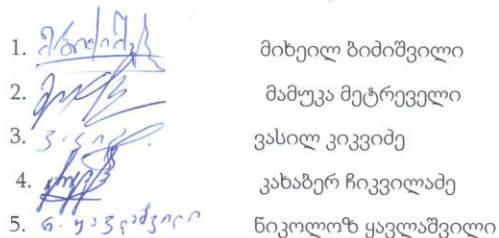 1. მიხეილ ბიძიშვილი
2. მამუკა მეტრეველი
3. ვასილ კიკვიძე
4. კახაბერ ჩიკვილაძე
5. ნ. ყავლაშვილი ნიკოლოზ ყავლაშვილი